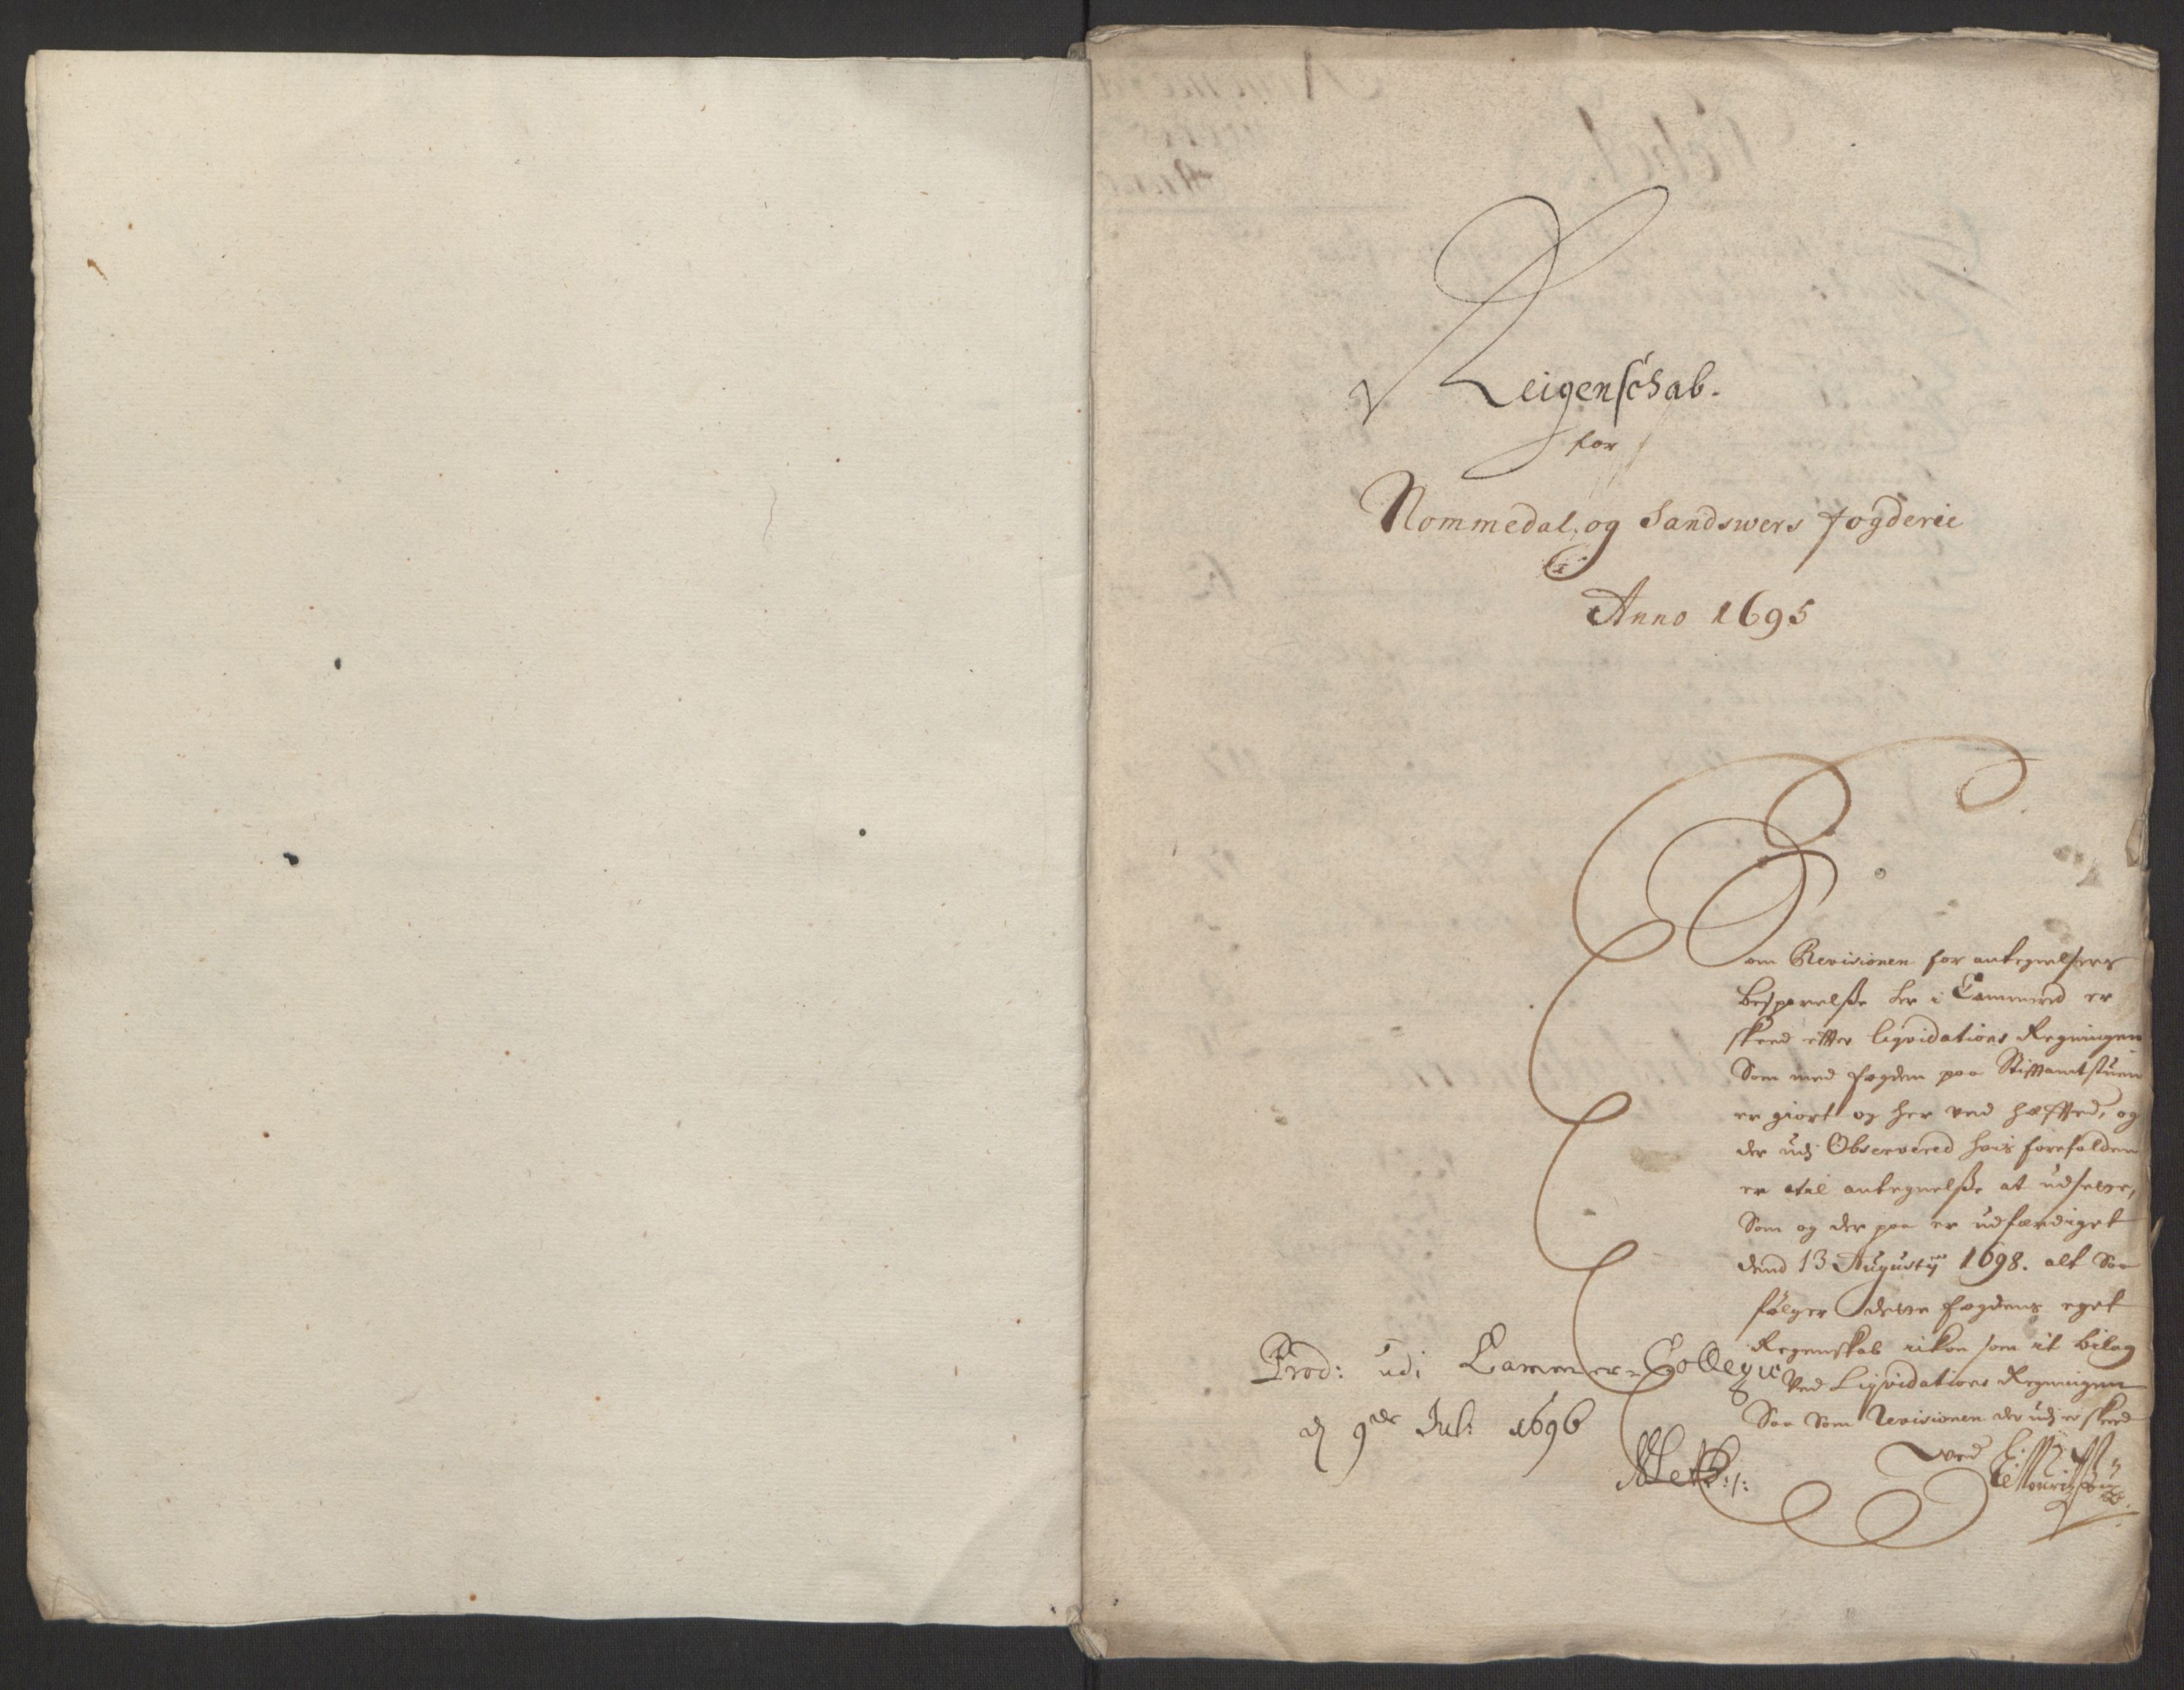 Reigenschab.
for
Nommedal og Sandswers fogderie
Anno 1695
Som Revisionen for antegnelsers
besparelße her i Cammered er
skeed efter liqvidations Regningen
Som med fogden paa Stiftamtstuen
er giort og her ved heffted, og
der udj Observered hvis forefalden
er til antegnelße at udsette,
Som og der paa er udferdiget
dend 13 Augusti 1698. alt Saa
følger dette fogdens eget
Regenskab ikon som it bilag
Ved Liqvidations Regningen
Saa Som Revisionen der udj er skeed
ved
Prod: udi Cammer-Collegie
d 9de Juli 1696